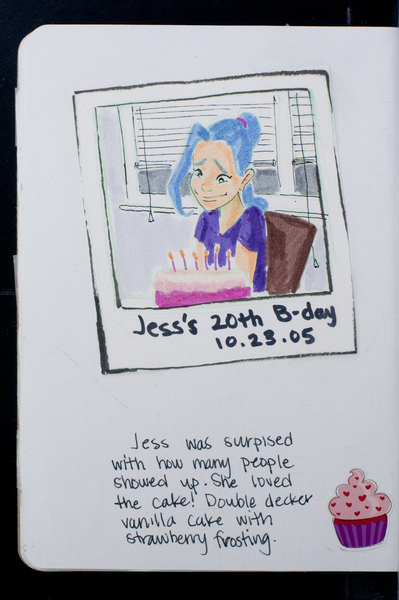 Jess's 20th B-day
10.23.05
Jess was surprised
with how many people
showed up. She loved
the cake! Double decker
vanilla cake with
strawberry frosting.